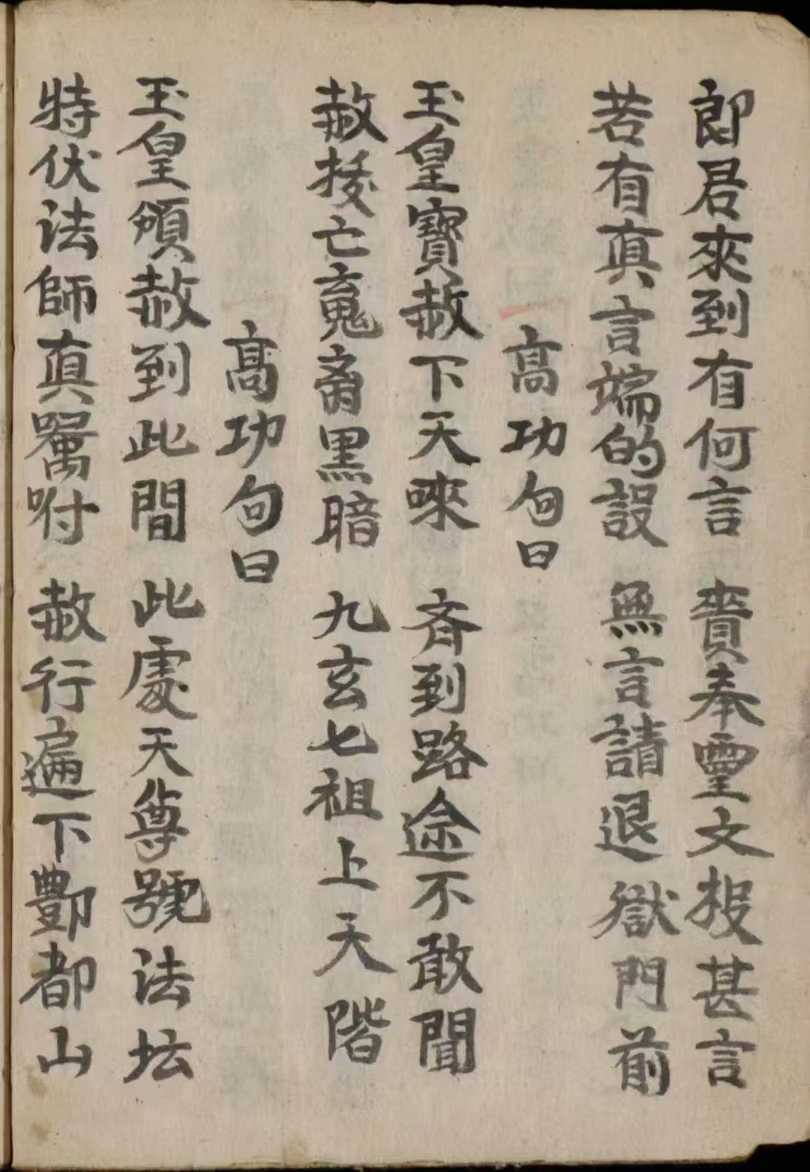 郎君來到有何言　賫奉霊文投甚言
若有真言端的説　無言請退獄門前
高功句曰
玉皇寶赦下天唻　斉到路途不敢聞
赦拔亡䰟离黒暗　九玄七祖上天階
高功句曰
玉皇頒赦到此間　此處天尊號法坛
特伏法師真嘱咐　赦行遍下酆都山